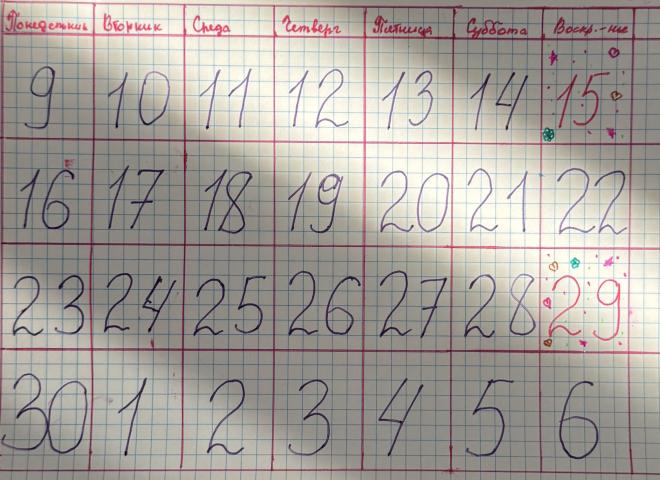 Понедельник Вторник Среда Четверг Пятница Суббота Воскр.-ние
9 10 11 12 13 14 15
16 17 18 19 20 21 22
23 24 25 26 27 28 29
30 1 2 3 4 5 6